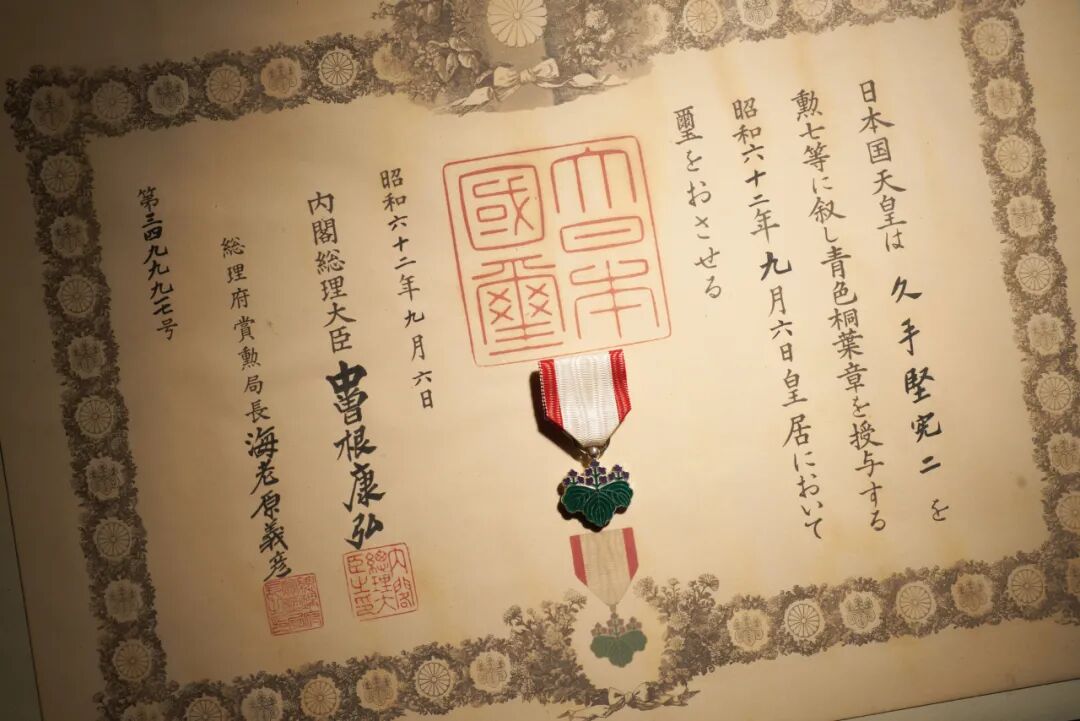 日本国天皇は久手堅宪二を
勲七等に叙し青色桐葉章を授与する
昭和六十二年九月六日皇居において
璽をおさせる
大日本
國璽
昭和六十二年九月六日
内閣総理大臣中曽根康弘
内閣
総理大
臣之印
総理府賞勲局長海老原義彦
第三四九九九七号